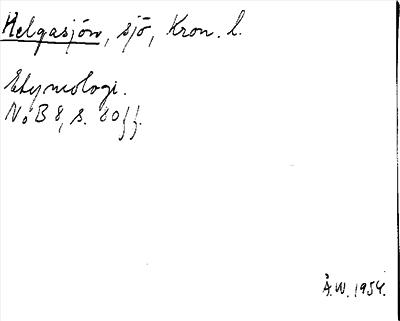 Helgasjön, sjö, Kron. l.
Etymologi.
NoB 8, s. 80 ff.
Å.W. 1954.